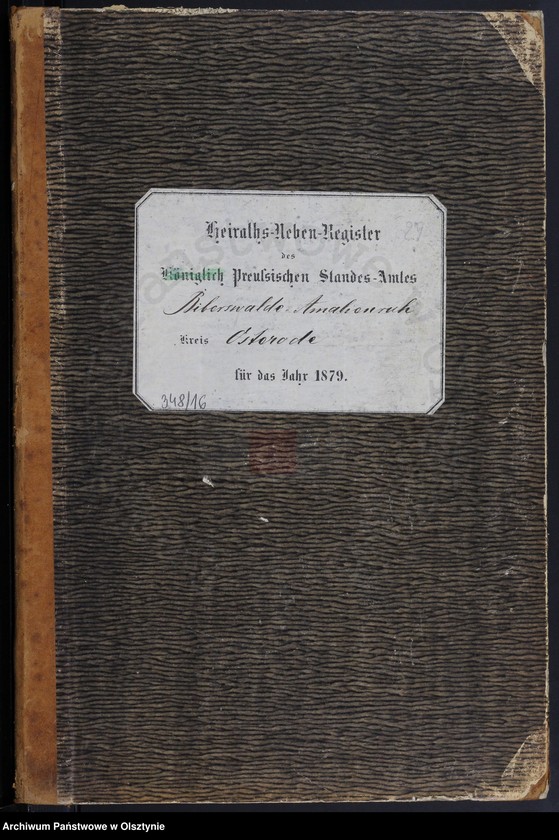 Heiraths-Neben-Register
29
des
Königlich Preußischen Standes-Amtes
Biberswalde-Amalienruh
Kreis Osterode
für das Jahr 1879.
348/16
Archiwum Państwowe w Olsztynie